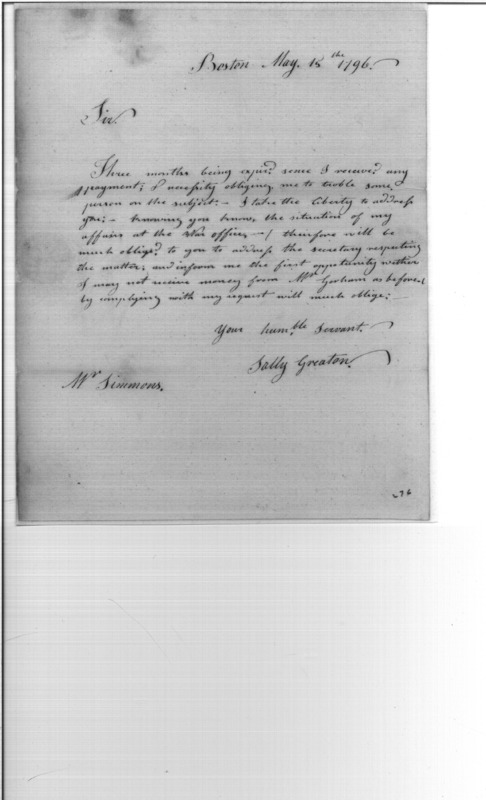 Boston May. 18the 1796.
Sir
Three months being expird some I receved any
payment; & necessity obligeing me to troble some
person on the subject. – I take the liberty to address
you; – knowing you know, the situation of my
affairs at the War office, – I therefore will be
much obligd to you to address the secretary respecting
the matter; and inform me the first oppertunity wether
I may not receive money from Mr Gorham as before;
by complying with my request will much oblige; –
Your humble Servant.
Sally Greaton.
Mr Simmons.